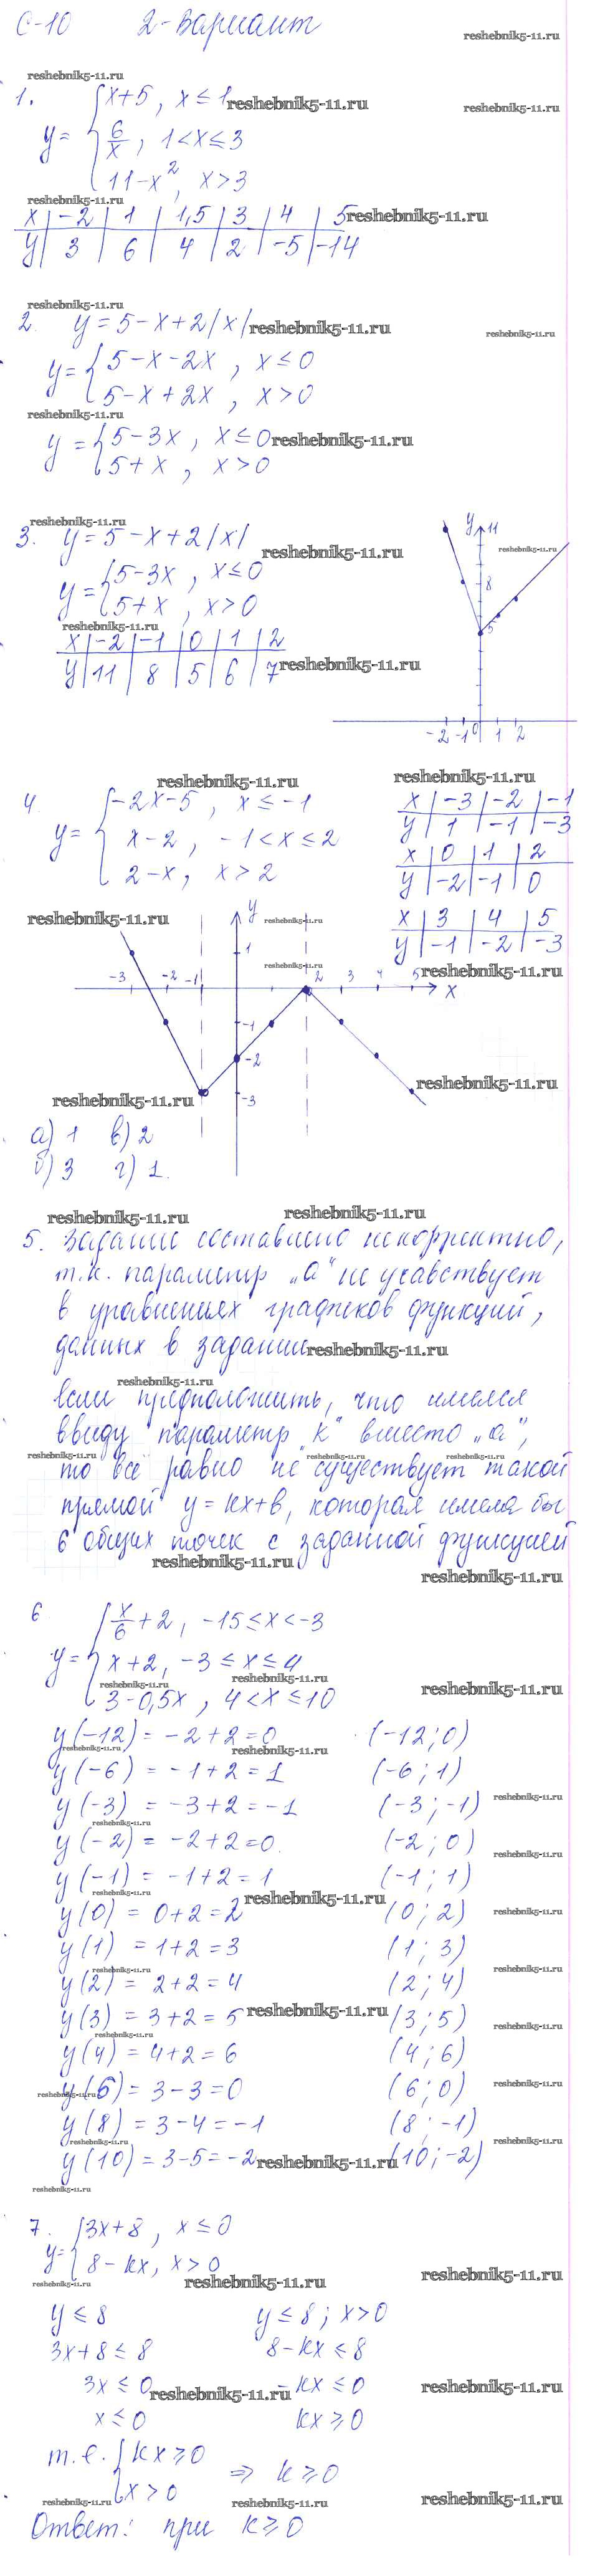 С-10 2-Вариант
reshebnik5-11.ru
reshebnik5-11.ru
1. y = { x+5, x ≤ 1 reshebnik5-11.ru
reshebnik5-11.ru
6/x, 1 < x ≤ 3
11-x², x > 3
reshebnik5-11.ru
x | -2 | 1 | 1,5 | 3 | 4 | 5 reshebnik5-11.ru
y | 3 | 6 | 4 | 2 | -5 | -14
reshebnik5-11.ru
2. y = 5-x+2|x| reshebnik5-11.ru
reshebnik5-11.ru
y = { 5-x-2x, x ≤ 0
5-x+2x, x > 0
reshebnik5-11.ru
y = { 5-3x, x ≤ 0 reshebnik5-11.ru
5+x, x > 0
reshebnik5-11.ru
3. y = 5-x+2|x|
reshebnik5-11.ru
y = { 5-3x, x ≤ 0
5+x, x > 0
reshebnik5-11.ru
x | -2 | -1 | 0 | 1 | 2
y | 11 | 8 | 5 | 6 | 7 reshebnik5-11.ru
y 11
reshebnik5-11.ru
8
5
-2 -1 0 1 2
reshebnik5-11.ru
reshebnik5-11.ru
4. y = { -2x-5, x ≤ -1
x-2, -1 < x ≤ 2
2-x, x > 2
x | -3 | -2 | -1
y | 1 | -1 | -3
x | 0 | 1 | 2
y | -2 | -1 | 0
x | 3 | 4 | 5
y | -1 | -2 | -3
reshebnik5-11.ru
reshebnik5-11.ru
reshebnik5-11.ru
reshebnik5-11.ru
y
1
-3 -2 -1 2 3 4 5 x
-1
-2
-3
reshebnik5-11.ru
reshebnik5-11.ru
а) 1 в) 2
б) 3 г) 1.
reshebnik5-11.ru
reshebnik5-11.ru
5. Задание составлено некорректно,
т.к. параметр „а" не учавствует
в уравнениях графиков функций,
данных в задании reshebnik5-11.ru
reshebnik5-11.ru
если предположить, что имелся
ввиду параметр „к" вместо „а",
reshebnik5-11.ru
reshebnik5-11.ru
reshebnik5-11.ru
то всё равно не существует такой
прямой y = kx+b, которая имела бы
6 общих точек с заданной функцией
reshebnik5-11.ru
reshebnik5-11.ru
6 y = { x/6 + 2, -15 ≤ x < -3
x+2, -3 ≤ x ≤ 4
reshebnik5-11.ru
reshebnik5-11.ru
reshebnik5-11.ru
3-0,5x, 4 < x ≤ 10
y(-12) = -2+2=0 (-12; 0)
reshebnik5-11.ru
reshebnik5-11.ru
reshebnik5-11.ru
y(-6) = -1+2=1 (-6; 1)
y(-3) = -3+2=-1 (-3; -1)
reshebnik5-11.ru
reshebnik5-11.ru
y(-2) = -2+2=0. (-2; 0)
reshebnik5-11.ru
y(-1) = -1+2=1 (-1; 1)
reshebnik5-11.ru
reshebnik5-11.ru
y(0) = 0+2=2 (0; 2)
reshebnik5-11.ru
y(1) = 1+2=3 (1; 3)
reshebnik5-11.ru
reshebnik5-11.ru
y(2) = 2+2=4 (2; 4)
y(3) = 3+2=5 reshebnik5-11.ru (3; 5)
reshebnik5-11.ru
reshebnik5-11.ru
y(4) = 4+2=6 (4; 6)
y(6) = 3-3=0 (6; 0)
reshebnik5-11.ru
reshebnik5-11.ru
y(8) = 3-4=-1 (8; -1)
reshebnik5-11.ru
reshebnik5-11.ru
y(10) = 3-5=-2 reshebnik5-11.ru (10; -2)
reshebnik5-11.ru
7. y = { 3x+8, x ≤ 0
8-kx, x > 0
reshebnik5-11.ru
reshebnik5-11.ru
reshebnik5-11.ru
y ≤ 8 y ≤ 8; x > 0
3x+8 ≤ 8 8-kx ≤ 8
3x ≤ 0 reshebnik5-11.ru -kx ≤ 0 reshebnik5-11.ru
x ≤ 0 kx ≥ 0
т.е. { kx ≥ 0
x > 0 ⇒ k ≥ 0
reshebnik5-11.ru
reshebnik5-11.ru
reshebnik5-11.ru
Ответ: при k ≥ 0